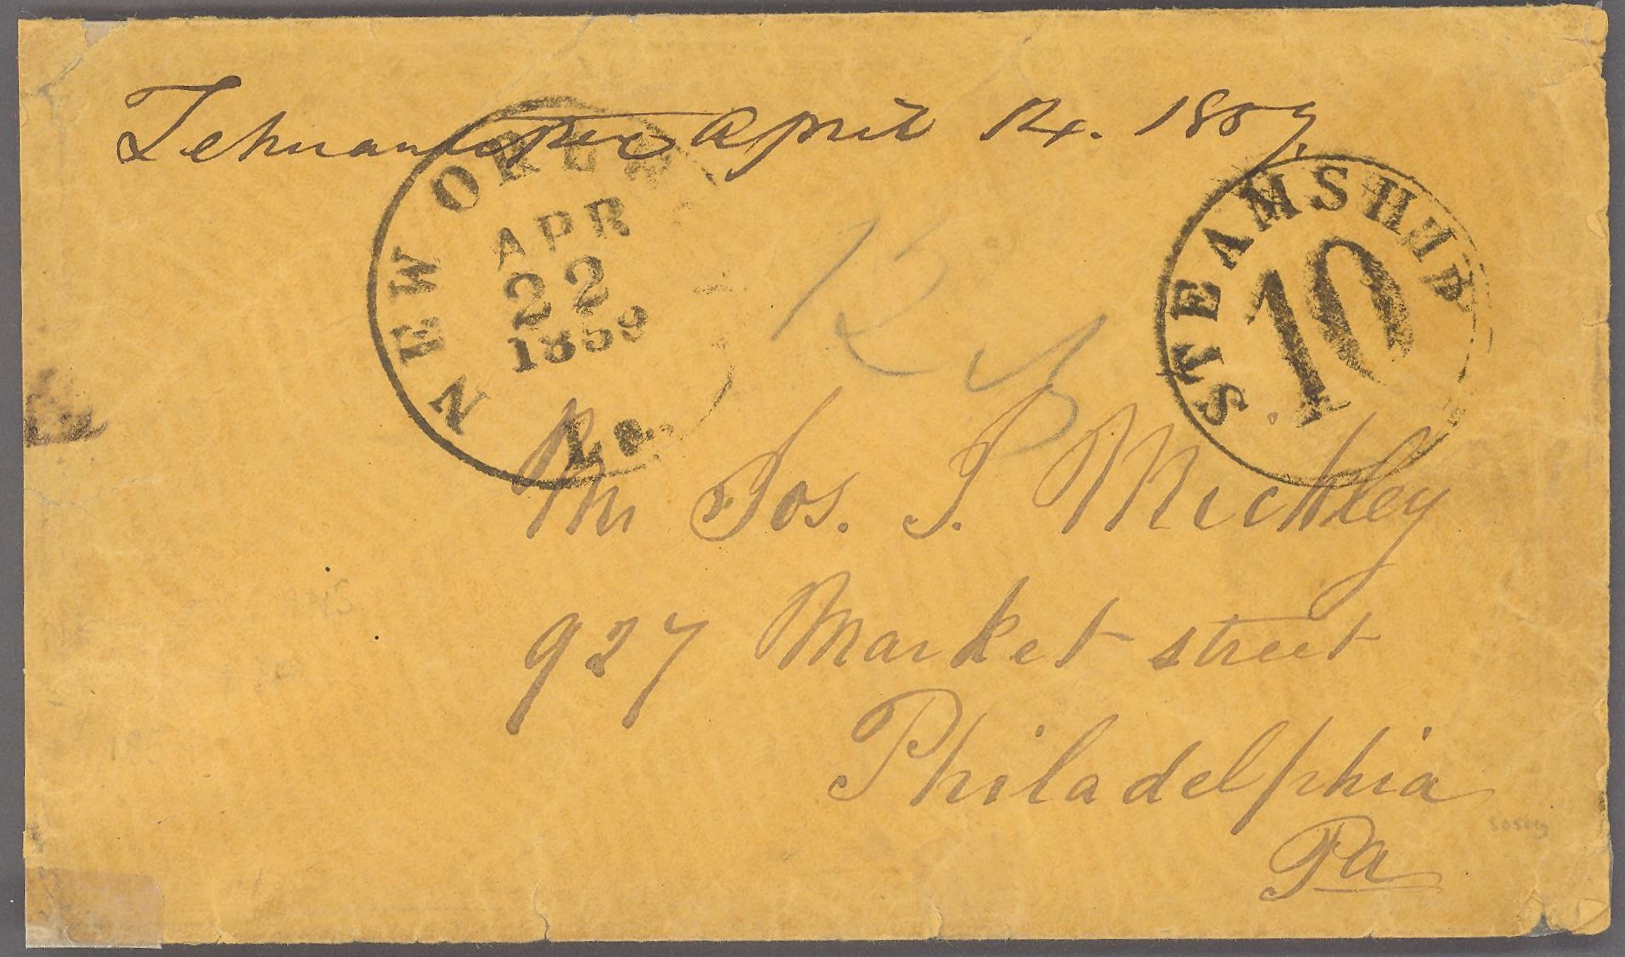 Tehuantepec April 14. 1859.
NEW ORLEANS
APR
22
1859
La.
STEAMSHIP
10
Mr Jos. J. Mickley
927 Market street
Philadelphia
Pa